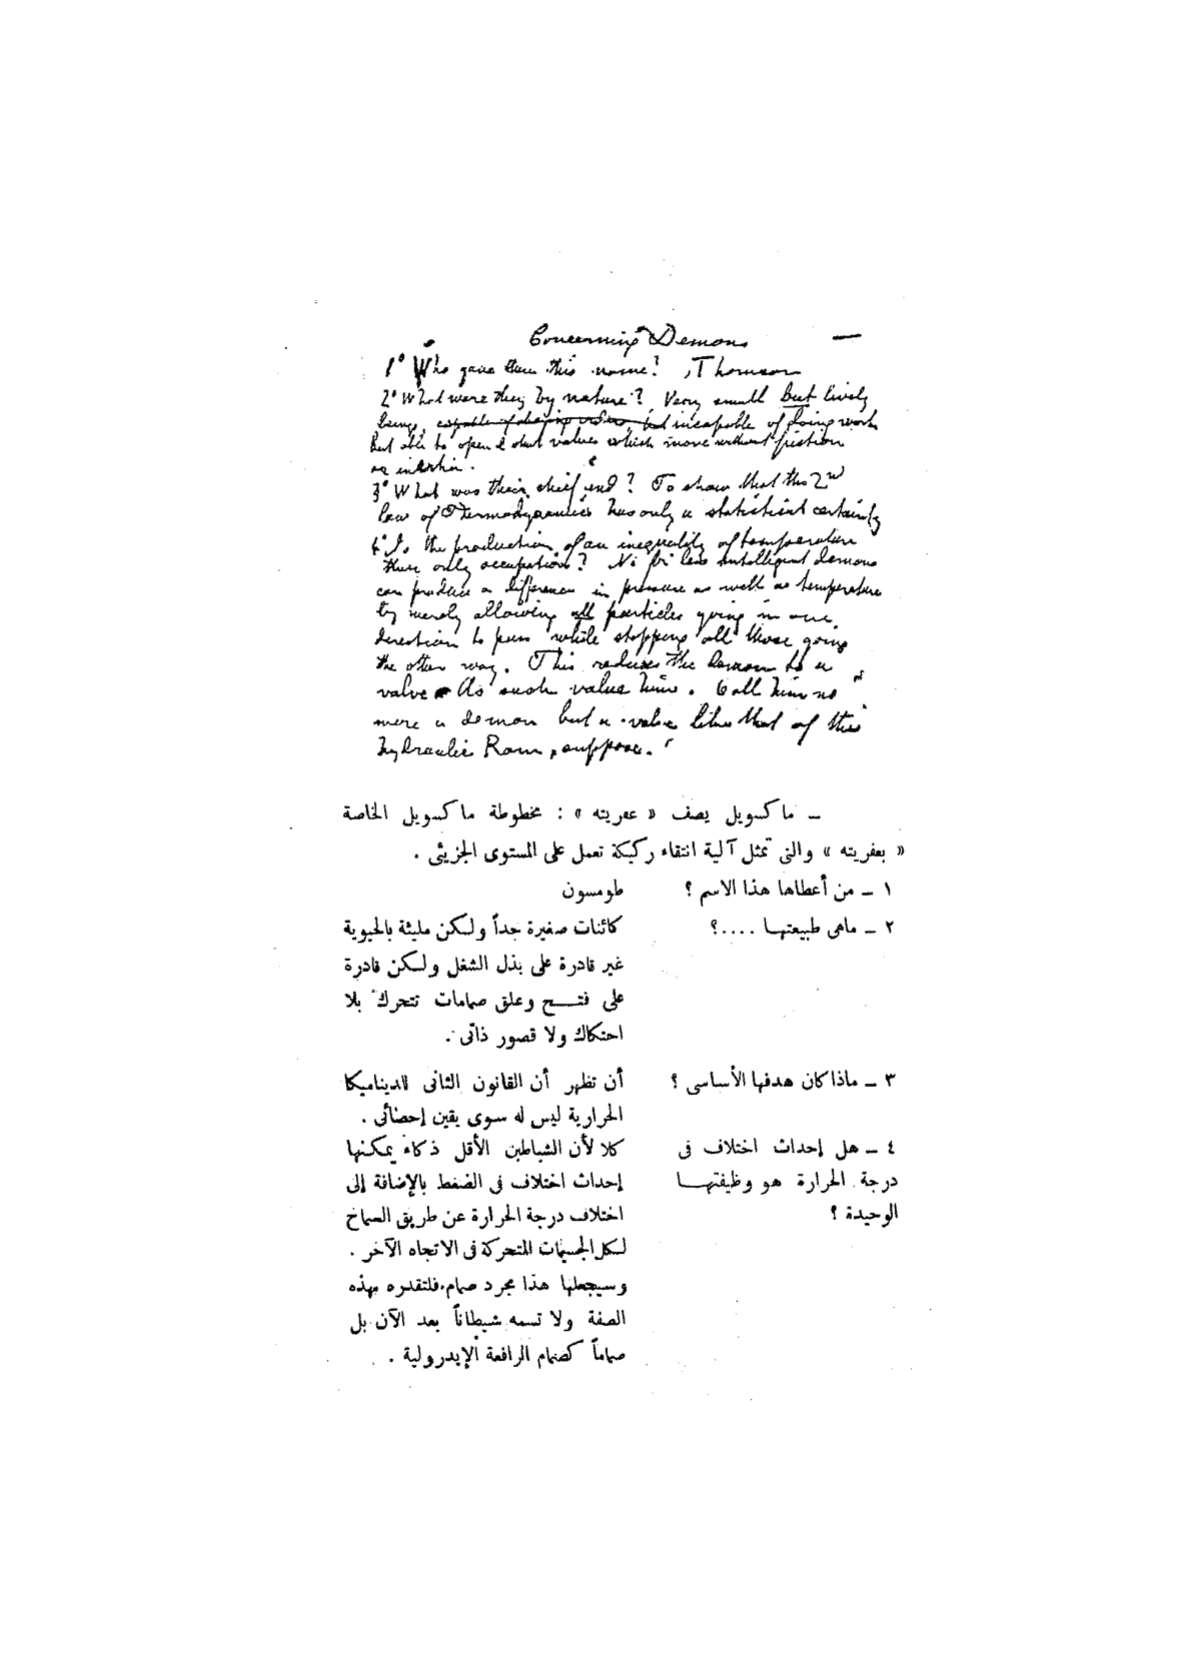 Concerning Demons
1° Who gave them this name? Thomson
2° What were they by nature? Very small but lively
beings incapable of doing work
but able to open & shut valves which move without friction
or inertia.
3° What was their chief end? To show that the 2nd
law of Thermodynamics has only a statistical certainty
4° Is the production of an inequality of temperature
their only occupation? No for less intelligent demons
can produce a difference in pressure as well as temperature
by merely allowing all particles going in one
direction to pass while stopping all those going
the other way. This reduces the demon to a
valve As such value him. Call him no
more a demon but a valve like that of the
hydraulic Ram, suppose.
ــ ماكسويل يصف « عفريته » : مخطوطة ماكسويل الخاصة
« بعفريته » والتى تمثل آلية انتقاء ركيكة تعمل على المستوى الجزيئى .
١ ــ من أعطاها هذا الاسم ؟ طومسون
٢ ــ ماهى طبيعتها ....؟ كائنات صغيرة جداً ولكن مليئة بالحيوية
غير قادرة على بذل الشغل ولكن قادرة
على فتح وغلق صمامات تتحرك بلا
احتكاك ولا قصور ذاتى .
٣ ــ ماذا كان هدفها الأساسى ؟ أن تظهر أن القانون الثانى للديناميكا
الحرارية ليس له سوى يقين إحصائى .
٤ ــ هل إحداث اختلاف فى كلا لأن الشياطين الأقل ذكاء يمكنها
درجة الحرارة هو وظيفتها إحداث اختلاف فى الضغط بالإضافة إلى
الوحيدة ؟ اختلاف درجة الحرارة عن طريق السماح
لكل الجسيمات المتحركة فى الاتجاه الآخر .
وسيجعلها هذا مجرد صمام. فلتقدره بهذه
الصفة ولا تسمه شيطاناً بعد الآن بل
صماماً كصمام الرافعة الإيدرولية .